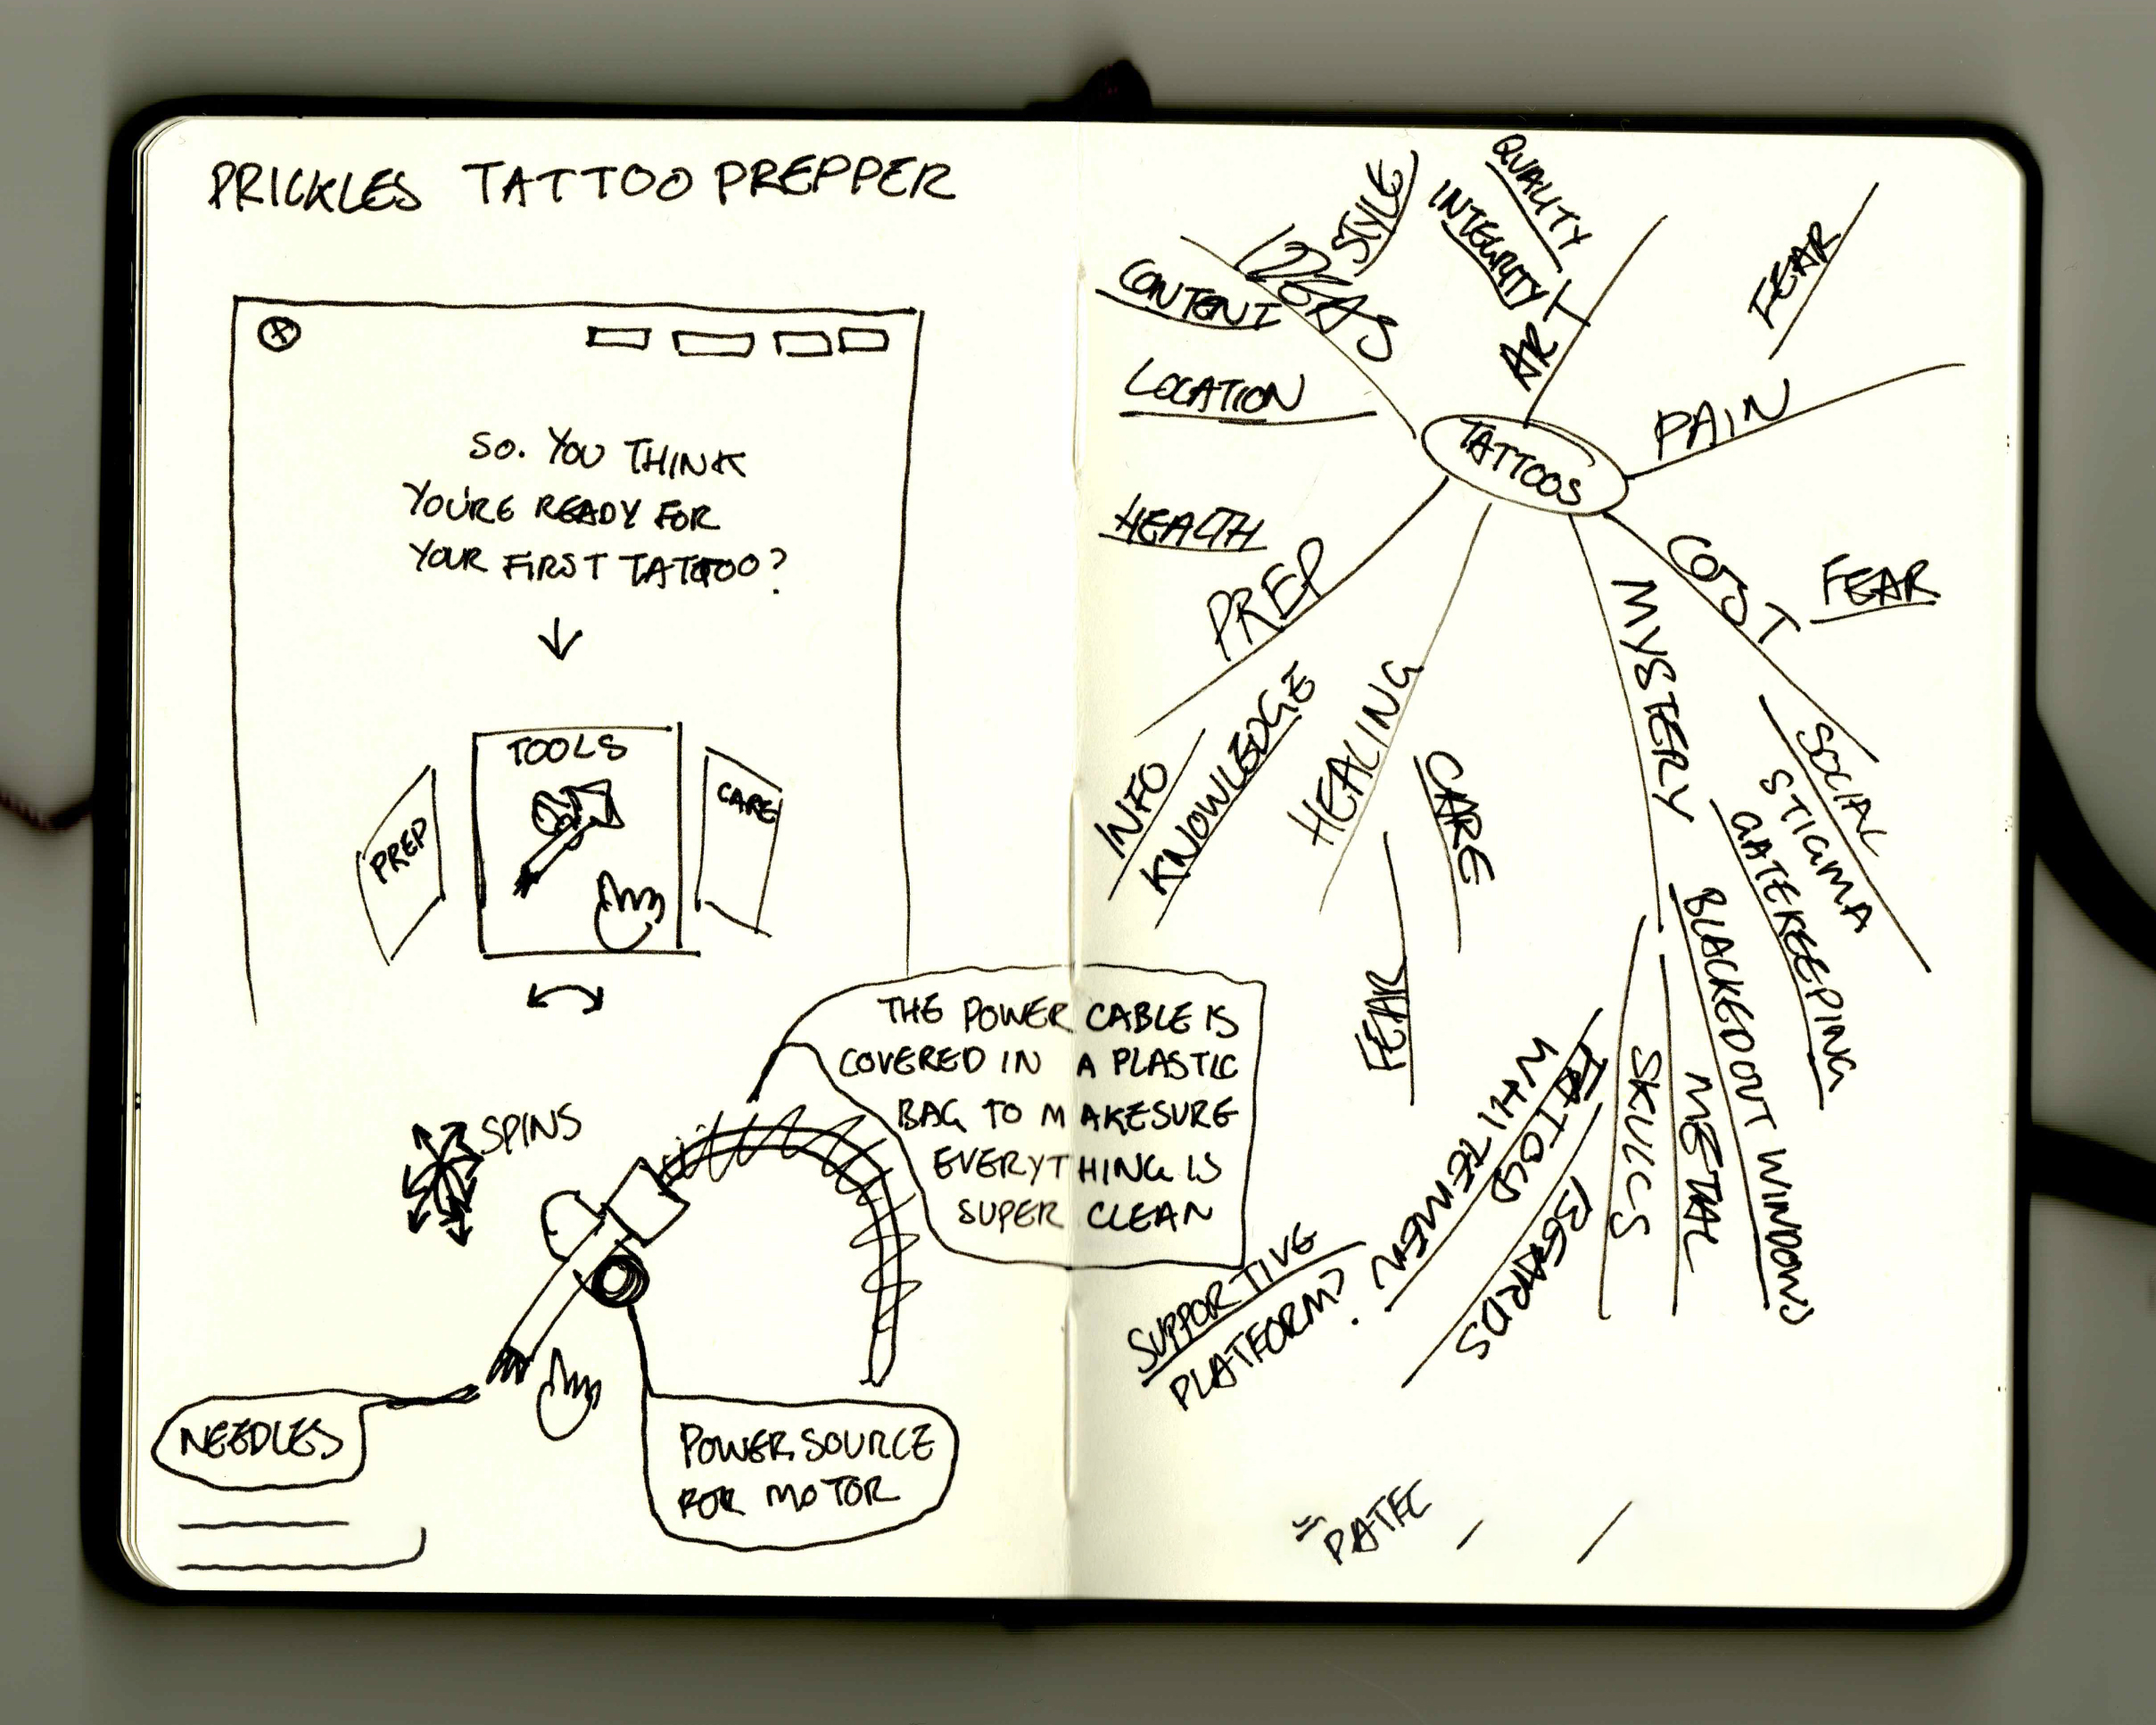 PRICKLES TATTOO PREPPER
SO. YOU THINK
YOU'RE READY FOR
YOUR FIRST TATTOO?
TOOLS
PREP
CARE
THE POWER CABLE IS
COVERED IN A PLASTIC
BAG TO MAKESURE
EVERYTHING IS
SUPER CLEAN
SPINS
NEEDLES
POWER SOURCE
FOR MOTOR
TATTOOS
IDEAS
STYLE
CONTENT
LOCATION
ART
INTEGRITY
QUALITY
PAIN
FEAR
COST
FEAR
SOCIAL
STIGMA
GATEKEEPING
MYSTERY
BLACKEDOUT WINDOWS
METAL
SKULLS
BEARDS
WHITEMEN
HEALING
CARE
FEAR
PREP
HEALTH
INFO
KNOWLEDGE
SUPPORTIVE
PLATFORM?